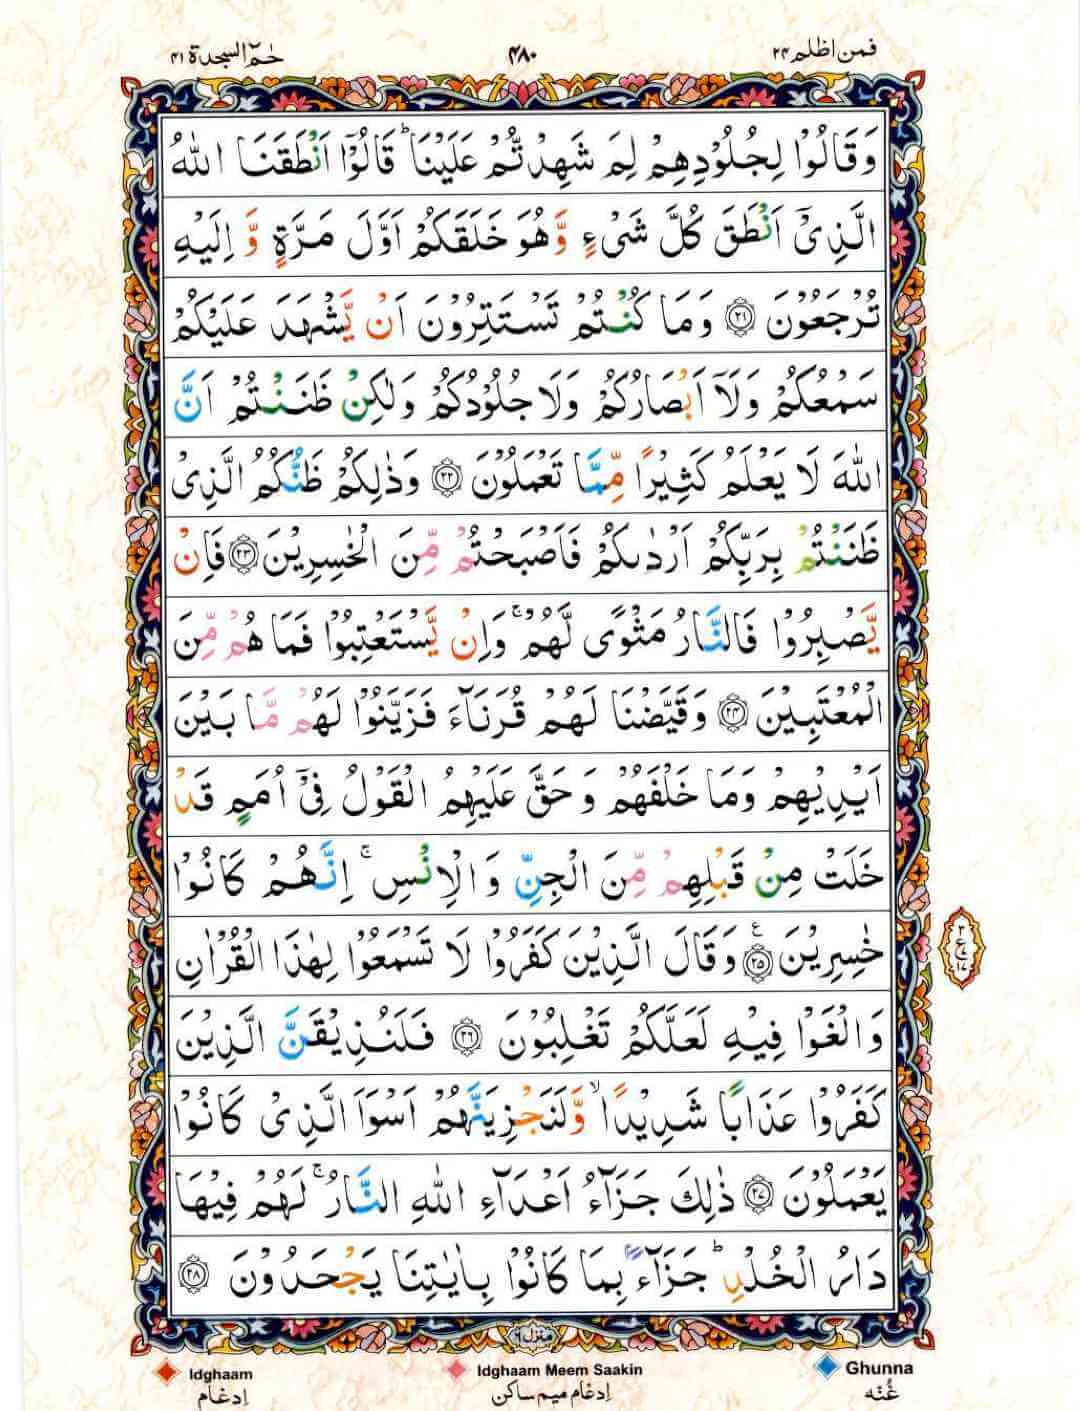 فمن اظلم ٢٤
٤٨٠
حٰمٓ السجدة ٤١
وَقَالُوْا لِجُلُوْدِهِمْ لِمَ شَهِدْتُّمْ عَلَيْنَا ؕ قَالُوْۤا اَنْطَقَنَا اللّٰهُ
الَّذِيْۤ اَنْطَقَ كُلَّ شَيْءٍ وَّ هُوَ خَلَقَكُمْ اَوَّلَ مَرَّةٍ وَّ اِلَيْهِ
تُرْجَعُوْنَ ﴿٢١﴾ وَمَا كُنْتُمْ تَسْتَتِرُوْنَ اَنْ يَّشْهَدَ عَلَيْكُمْ
سَمْعُكُمْ وَلَاۤ اَبْصَارُكُمْ وَلَا جُلُوْدُكُمْ وَلٰكِنْ ظَنَنْتُمْ اَنَّ
اللّٰهَ لَا يَعْلَمُ كَثِيْرًا مِّمَّا تَعْمَلُوْنَ ﴿٢٢﴾ وَذٰلِكُمْ ظَنُّكُمُ الَّذِيْ
ظَنَنْتُمْ بِرَبِّكُمْ اَرْدٰىكُمْ فَاَصْبَحْتُمْ مِّنَ الْخٰسِرِيْنَ ﴿٢٣﴾ فَاِنْ
يَّصْبِرُوْا فَالنَّارُ مَثْوًى لَّهُمْ ۚ وَاِنْ يَّسْتَعْتِبُوْا فَمَا هُمْ مِّنَ
الْمُعْتَبِيْنَ ﴿٢٤﴾ وَقَيَّضْنَا لَهُمْ قُرَنَآءَ فَزَيَّنُوْا لَهُمْ مَّا بَيْنَ
اَيْدِيْهِمْ وَمَا خَلْفَهُمْ وَ حَقَّ عَلَيْهِمُ الْقَوْلُ فِيْۤ اُمَمٍ قَدْ
خَلَتْ مِنْ قَبْلِهِمْ مِّنَ الْجِنِّ وَالْاِنْسِ ۚ اِنَّهُمْ كَانُوْا
خٰسِرِيْنَ ﴿٢٥﴾ ع وَقَالَ الَّذِيْنَ كَفَرُوْا لَا تَسْمَعُوْا لِهٰذَا الْقُرْاٰنِ
٣ ع ١٧
وَالْغَوْا فِيْهِ لَعَلَّكُمْ تَغْلِبُوْنَ ﴿٢٦﴾ فَلَنُذِيْقَنَّ الَّذِيْنَ
كَفَرُوْا عَذَابًا شَدِيْدًا ۙ وَّلَنَجْزِيَنَّهُمْ اَسْوَاَ الَّذِيْ كَانُوْا
يَعْمَلُوْنَ ﴿٢٧﴾ ذٰلِكَ جَزَآءُ اَعْدَآءِ اللّٰهِ النَّارُ ۚ لَهُمْ فِيْهَا
دَارُ الْخُلْدِ ؕ جَزَآءًۢ بِمَا كَانُوْا بِاٰيٰتِنَا يَجْحَدُوْنَ ﴿٢٨﴾
منزل ٦
Idghaam
Idghaam Meem Saakin
Ghunna
اِدغام
اِدغام میم ساکن
غُنّه